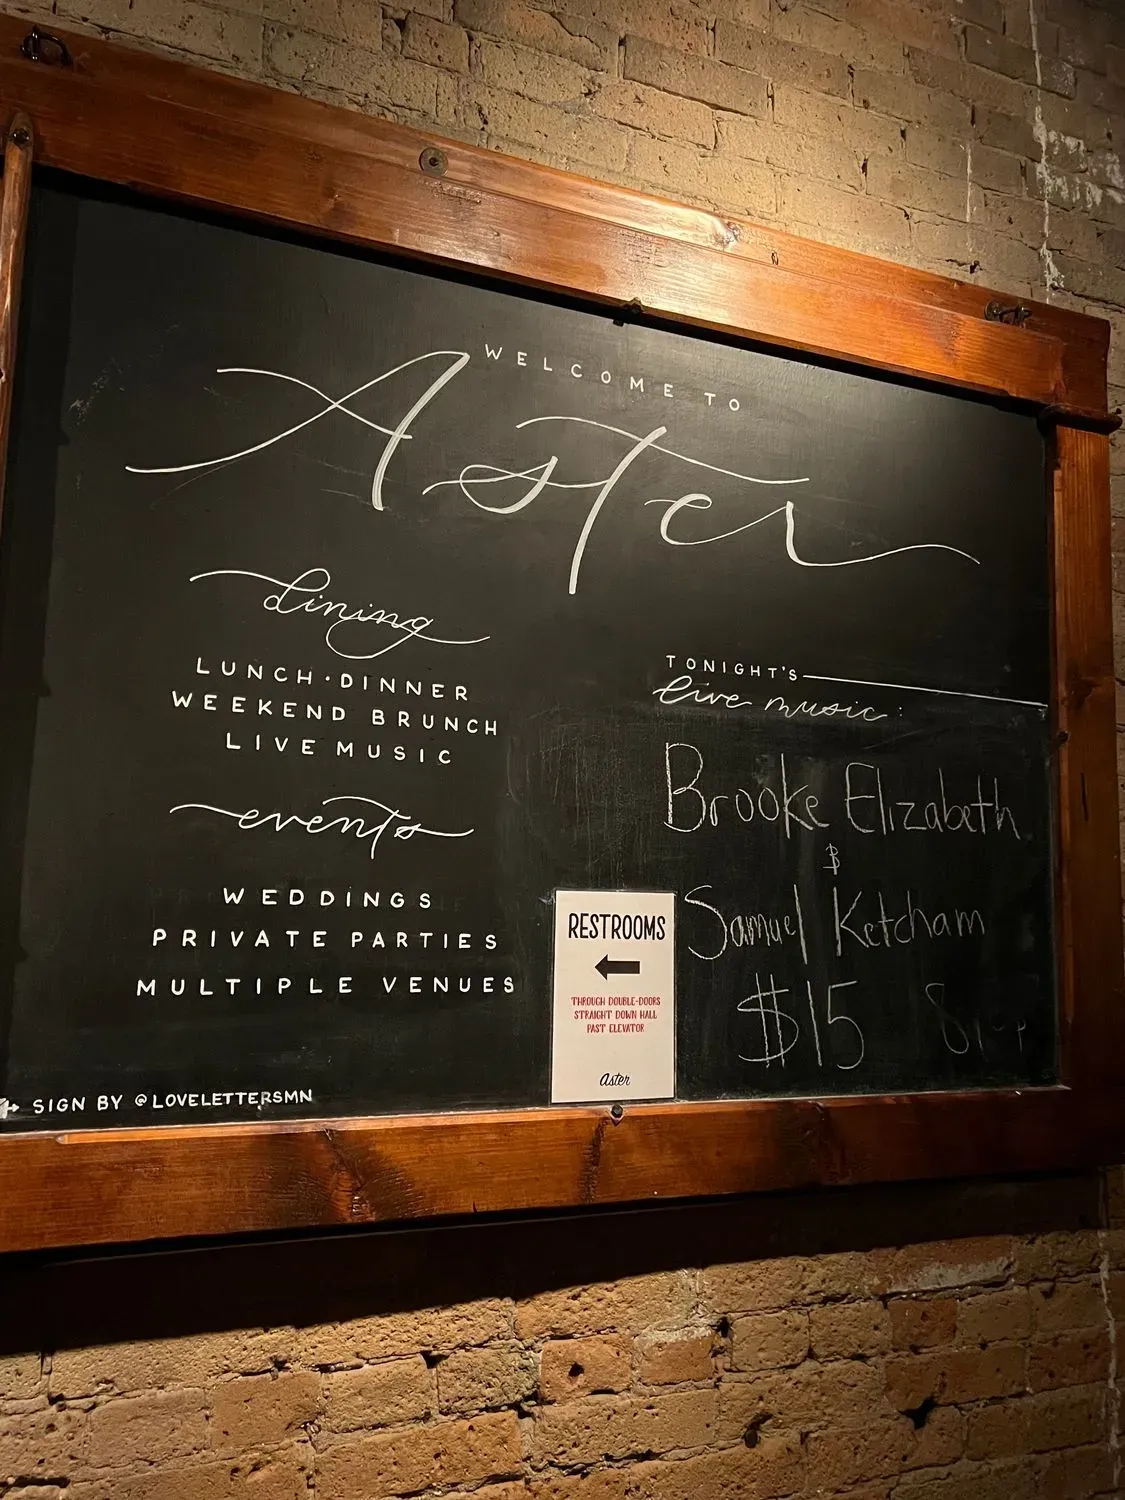 WELCOME TO
Aster
dining
LUNCH · DINNER
WEEKEND BRUNCH
LIVE MUSIC
events
WEDDINGS
PRIVATE PARTIES
MULTIPLE VENUES
SIGN BY @LOVELETTERSMN
TONIGHT'S
live music:
Brooke Elizabeth
&
Samuel Ketcham
$15
RESTROOMS
←
THROUGH DOUBLE-DOORS
STRAIGHT DOWN HALL
PAST ELEVATOR
aster